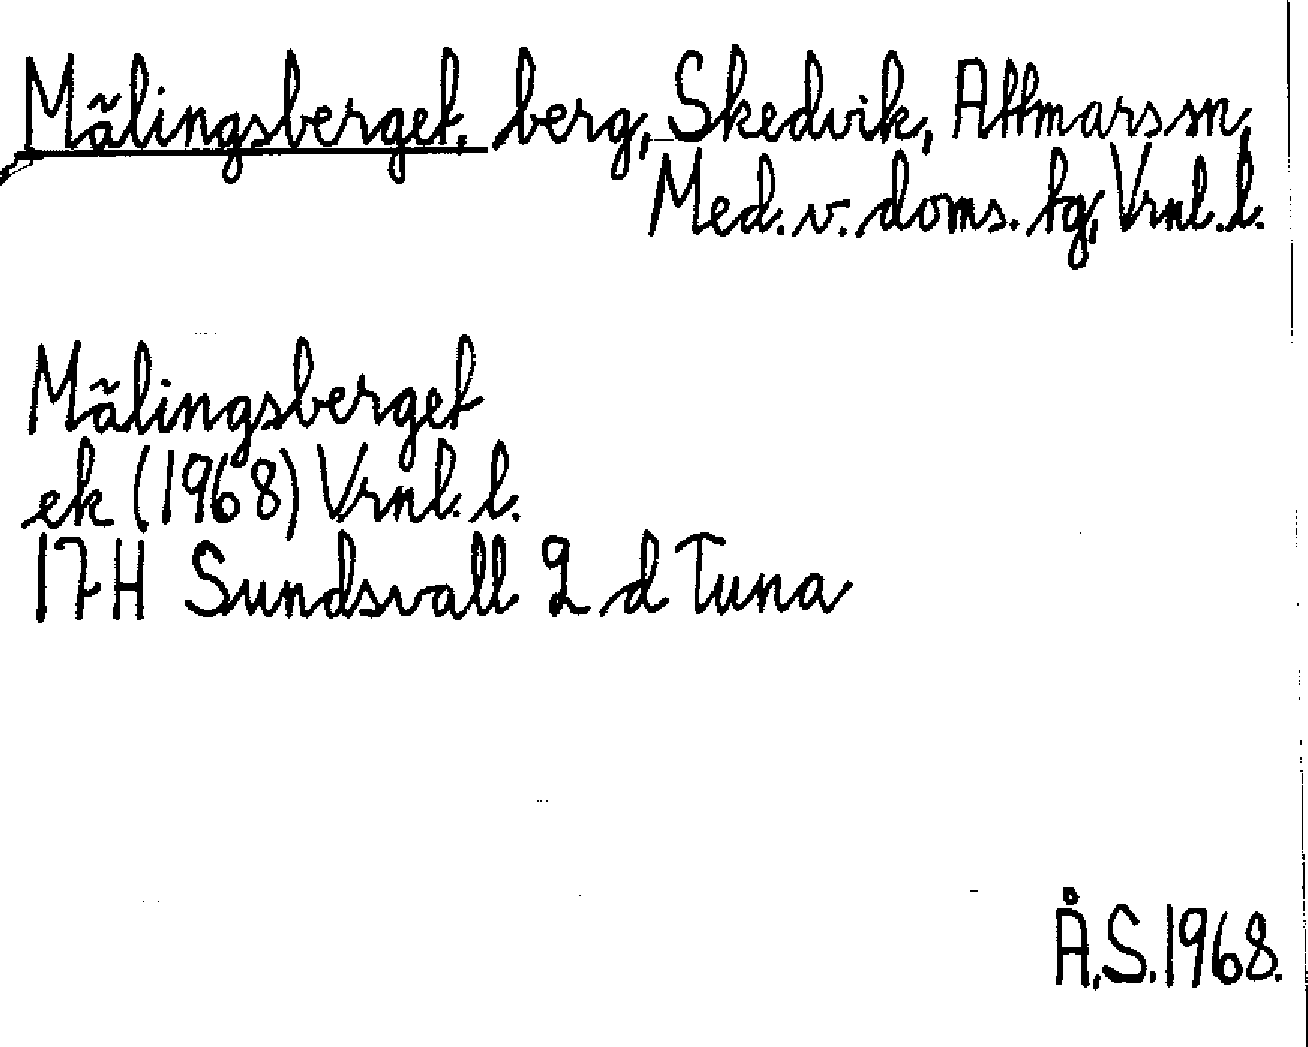 Målingsberget, berg, Skedvik, Attmars sn,
Med. v. doms. tg, Vrnl. l.
Målingsberget
ek (1968) Vrnl. l.
17H Sundsvall 2 d Tuna
Å.S. 1968.